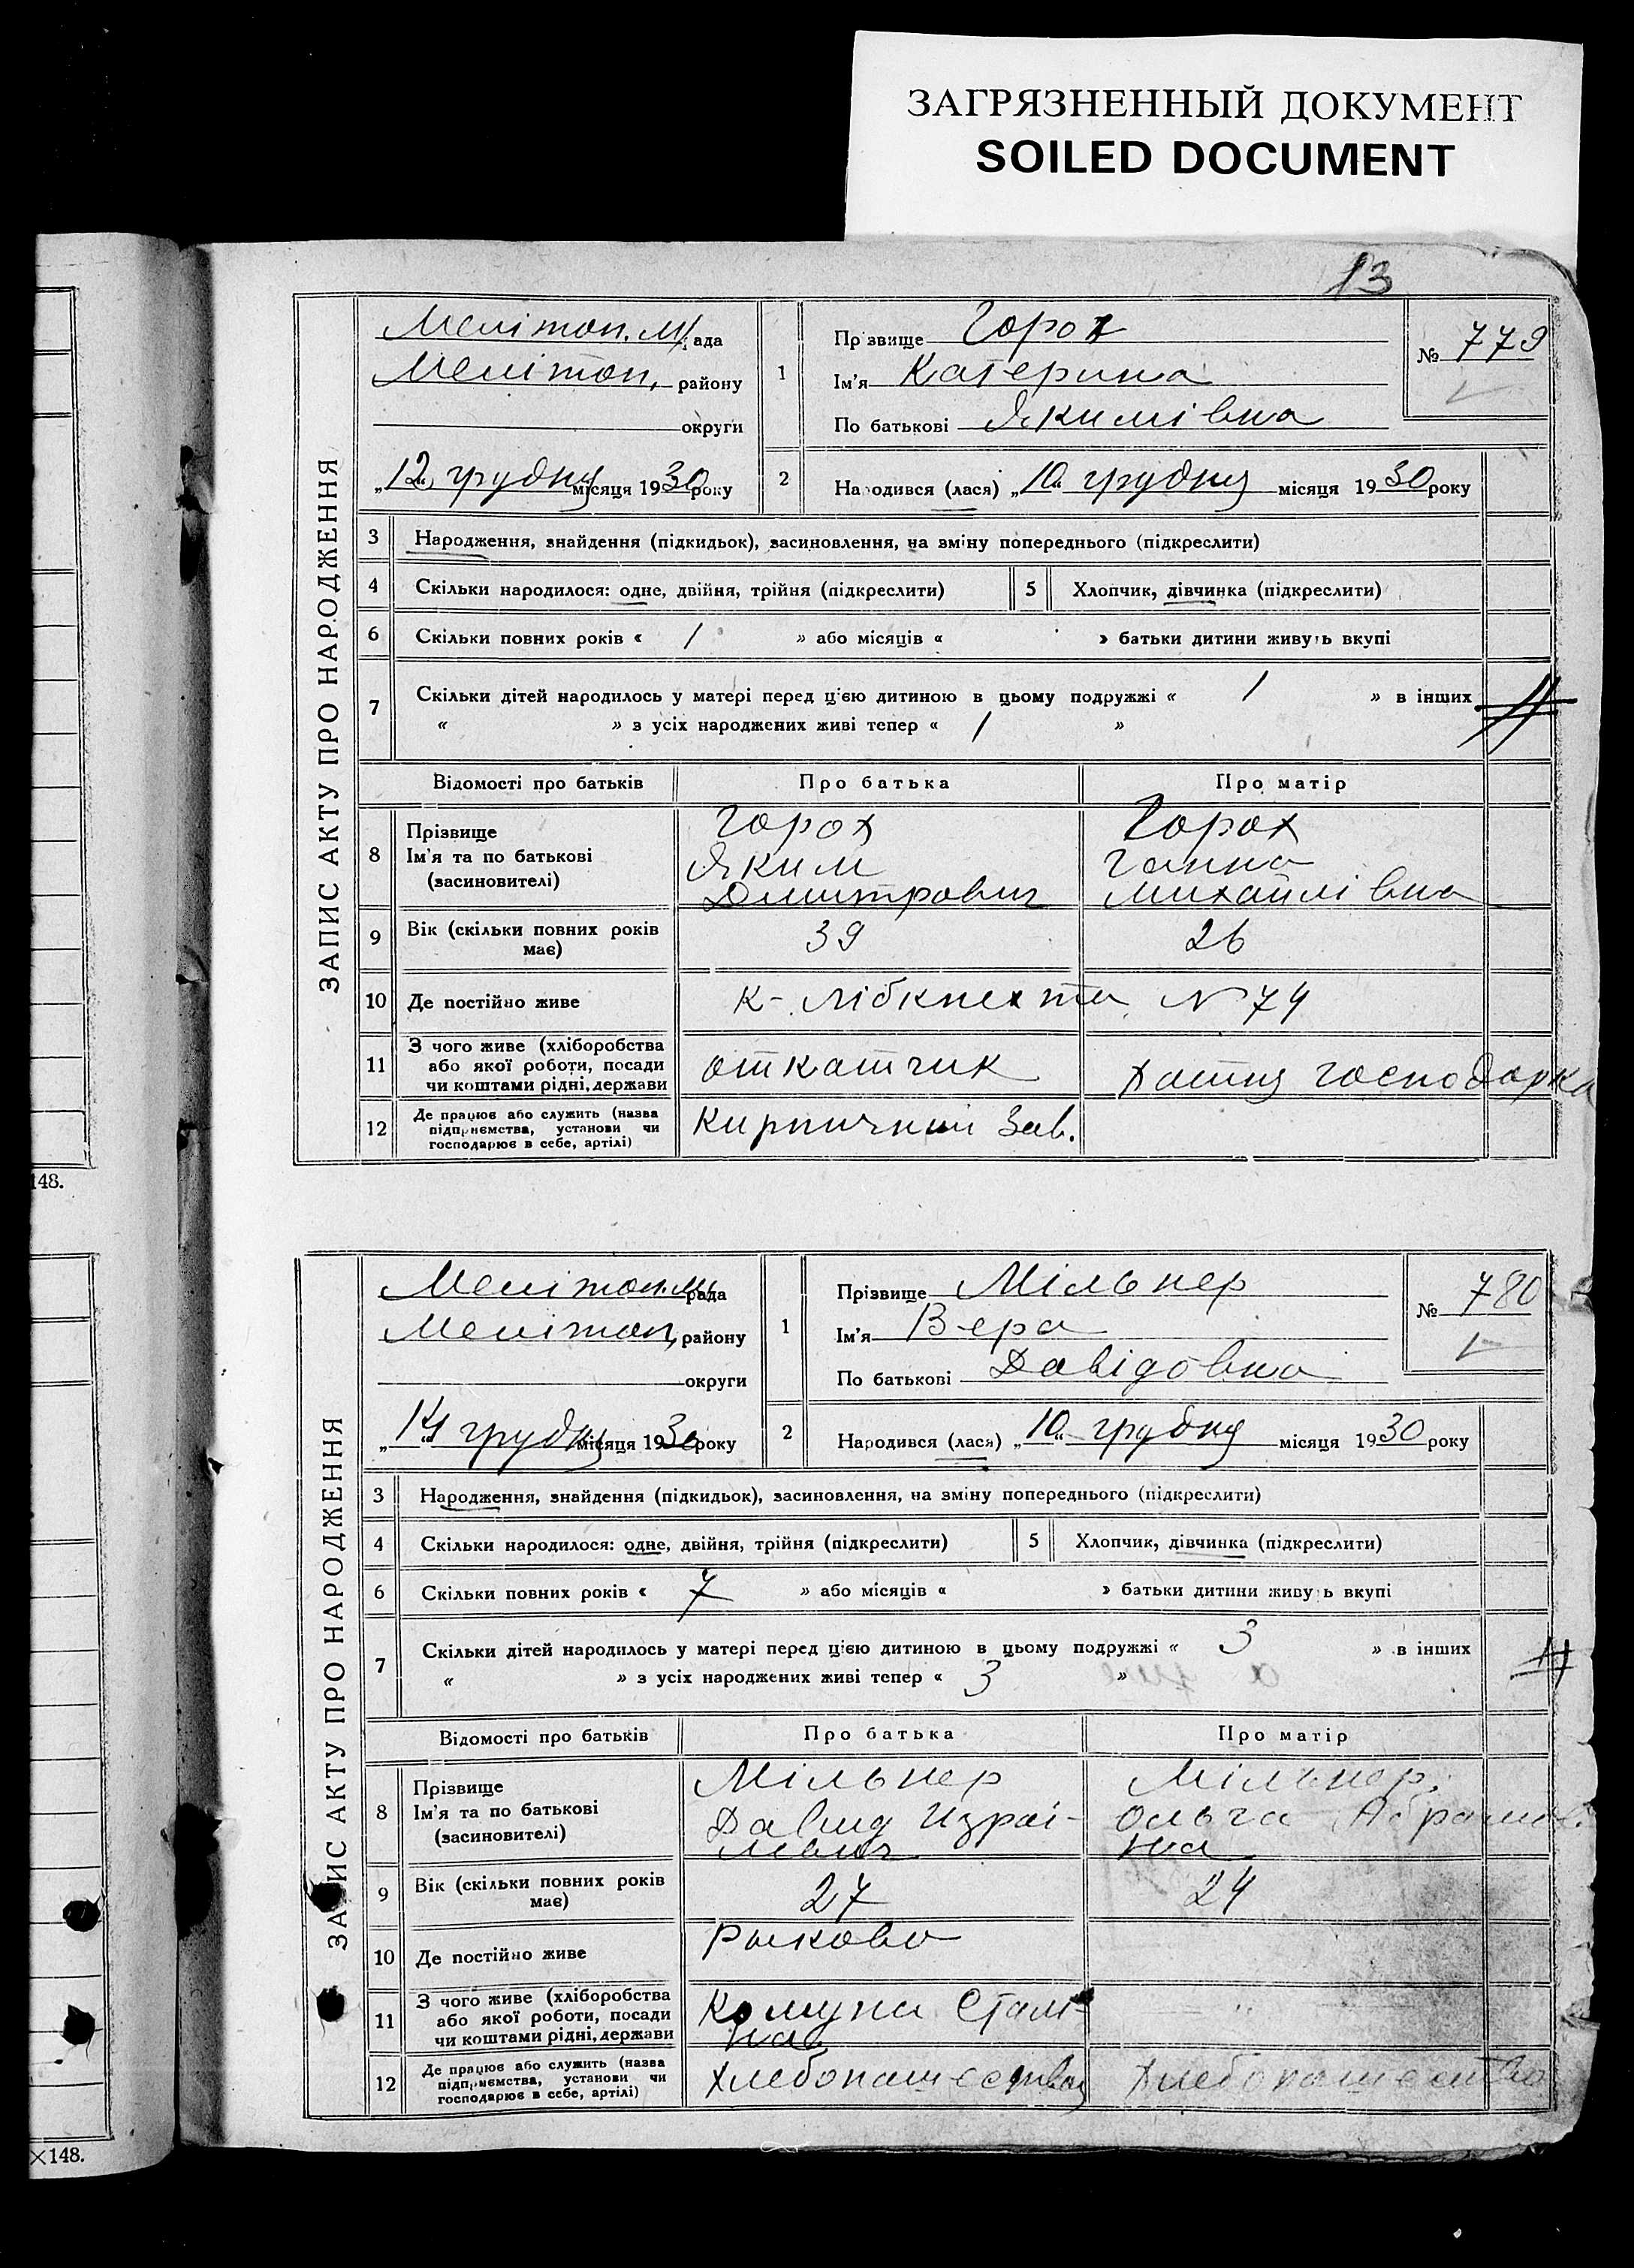 ЗАГРЯЗНЕННЫЙ ДОКУМЕНТ
SOILED DOCUMENT
13
ЗАПИС АКТУ ПРО НАРОДЖЕННЯ
Меліт­оп. М/рада
Мелітоп. району
округи
„12“ грудня місяця 1930 року
1
Прізвище Горох
Ім'я Катерина
По батькові Якимівна
№ 779
2
Народився (лася) „10“ грудня місяця 1930 року
3 Народження, знайдення (підкидьок), засиновлення, на зміну попереднього (підкреслити)
4 Скільки народилося: одне, двійня, трійня (підкреслити)
5 Хлопчик, дівчинка (підкреслити)
6 Скільки повних років « 1 » або місяців « » батьки дитини живуть вкупі
7 Скільки дітей народилось у матері перед цією дитиною в цьому подружжі « 1 » в інших
« » з усіх народжених живі тепер « 1 »
Відомості про батьків Про батька Про матір
8 Прізвище Горох Горох
Ім'я та по батькові Яким Ганна
(засиновителі) Дмитрович Михайлівна
9 Вік (скільки повних років має) 39 26
10 Де постійно живе К-Лібкнехта N 74
11 З чого живе (хліборобства
або якої роботи, посади откатчик Хатня господарка
чи коштами рідні, держави
12 Де працює або служить (назва
підприємства, установи чи Кирпичний Зав.
господарює в себе, артілі)
148.
ЗАПИС АКТУ ПРО НАРОДЖЕННЯ
Мелітоп. М. рада
Мелітоп, району
округи
„14“ грудня місяця 1930 року
1
Прізвище Мільнер
Ім'я Вера
По батькові Давідовна
№ 780
2
Народився (лася) „10“ грудня місяця 1930 року
3 Народження, знайдення (підкидьок), засиновлення, на зміну попереднього (підкреслити)
4 Скільки народилося: одне, двійня, трійня (підкреслити)
5 Хлопчик, дівчинка (підкреслити)
6 Скільки повних років « 7 » або місяців « » батьки дитини живуть вкупі
7 Скільки дітей народилось у матері перед цією дитиною в цьому подружжі « 3 » в інших
« » з усіх народжених живі тепер « 3 »
Відомості про батьків Про батька Про матір
8 Прізвище Мільнер Мільнер
Ім'я та по батькові Давид Израі- Ольга Абрамов.
(засиновителі) левич на
9 Вік (скільки повних років має) 27 24
10 Де постійно живе Рыково
11 З чого живе (хліборобства
або якої роботи, посади Комуна Сталі- — " —
чи коштами рідні, держави на
12 Де працює або служить (назва
підприємства, установи чи Хлебопашество Хлебопашество
господарює в себе, артілі)
×148.